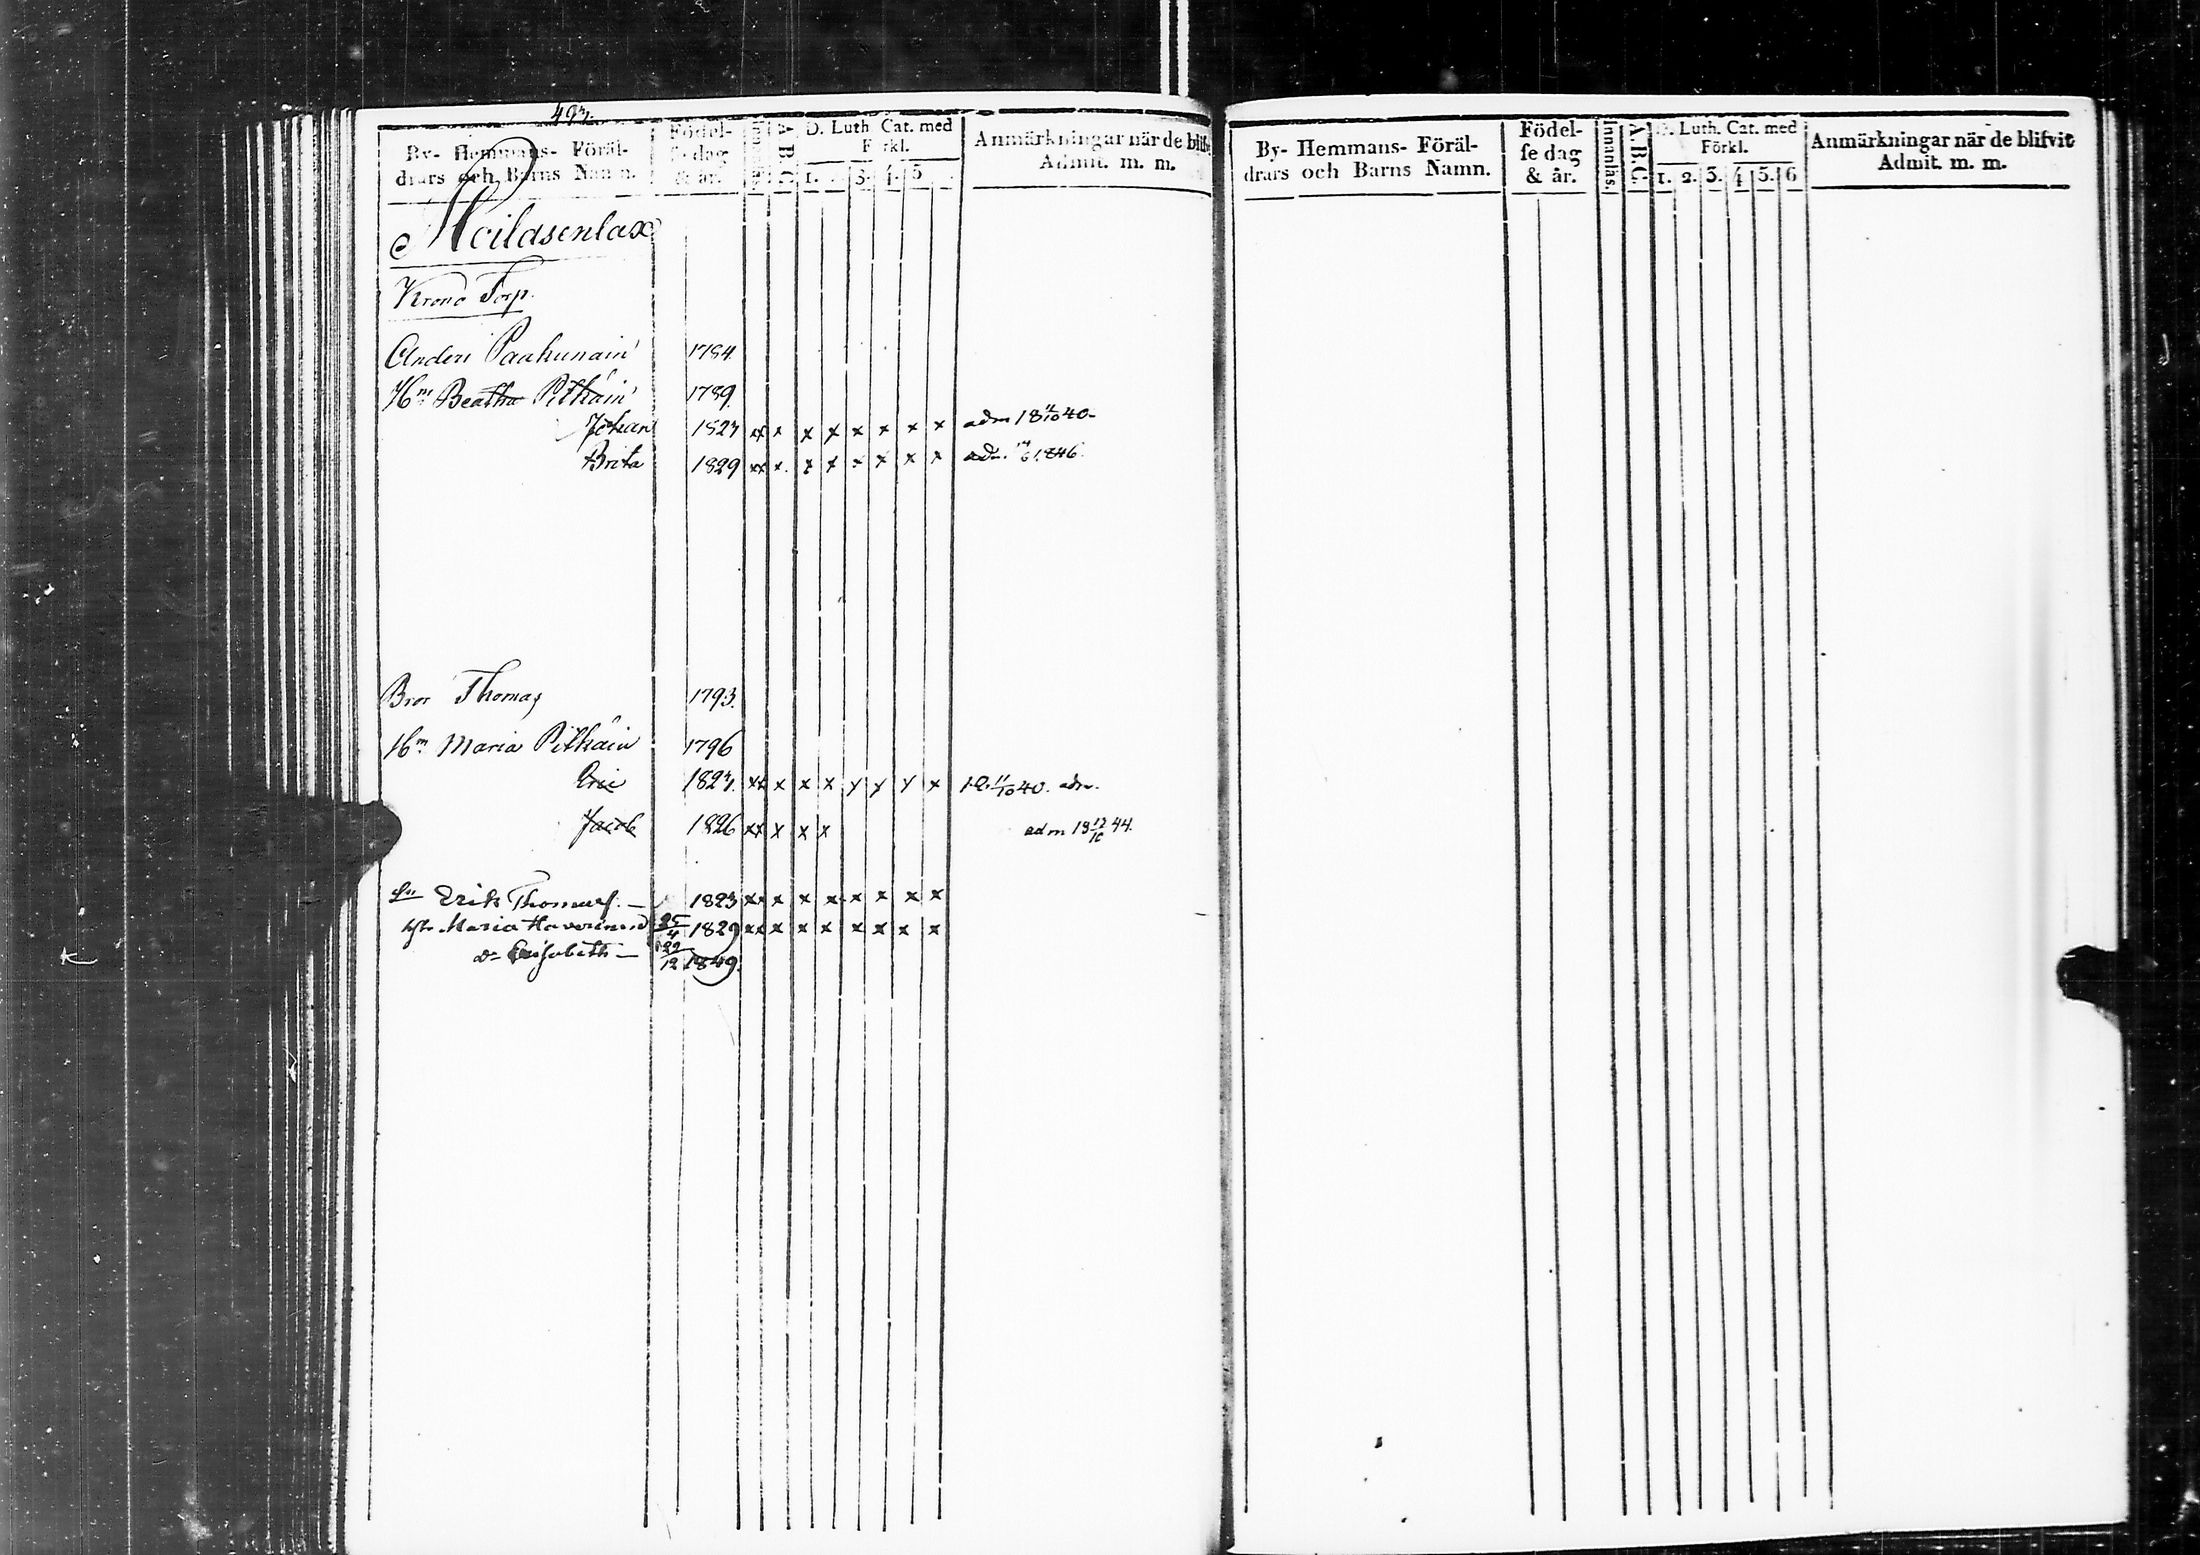 493.
By- Hemmans- Föräl-
drars och Barns Namn.
Födel-
se dag
& år.
A.B.C.
D. Luth. Cat. med
Förkl.
1. 3. 4. 5
Anmärkningar när de blifv
Admit. m. m.
Moilasenlax
Krono Torp.
Anders Paukunain 1784.
Hm Beatha Pitkäin 1789.
Johan 1823 xx x x x x x x x adm 18 11/10 40
Brita 1829 xx x x x x x x x 1846.
Bror Thomas 1793.
Hm Maria Pitkäin 1796
Eric 1823. xx x x x y y y x 18 11/10 40. adm.
Jacob 1826 xx x x x adm 18 12/10 44.
Erik Thomass. — 1823 xx x x x x x x x
Maria Haverinen 25/4 1829 xx x x x x x x x
Dr Elisabeth — 29/12 1849.
By- Hemmans- Föräl-
drars och Barns Namn.
Födel-
se dag
& år.
Innanläs.
A.B.C.
D. Luth. Cat. med
Förkl.
1. 2. 3. 4 5. 6
Anmärkningar när de blifvit
Admit. m. m.